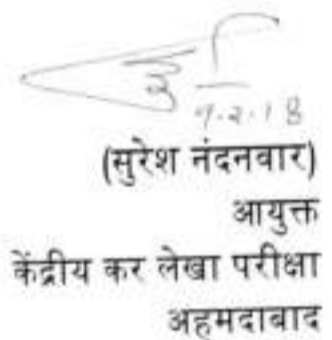 9.2.18
(सुरेश नंदनवार)
आयुक्त
केंद्रीय कर लेखा परीक्षा
अहमदाबाद